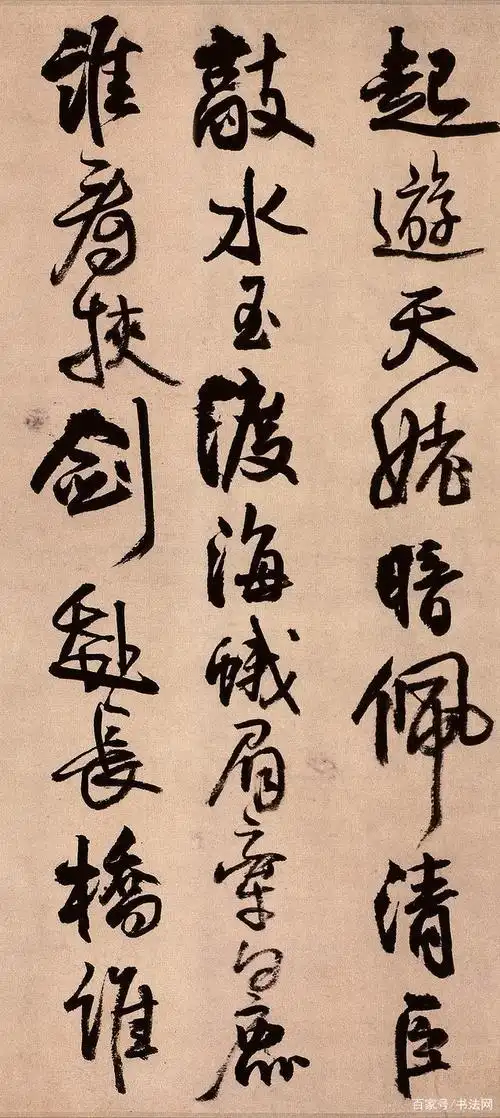 起遊天姥暗佩清臣
敲水玉渡海蛾眉牽白鹿
誰看挾劍赴長橋誰
百家号/书法网